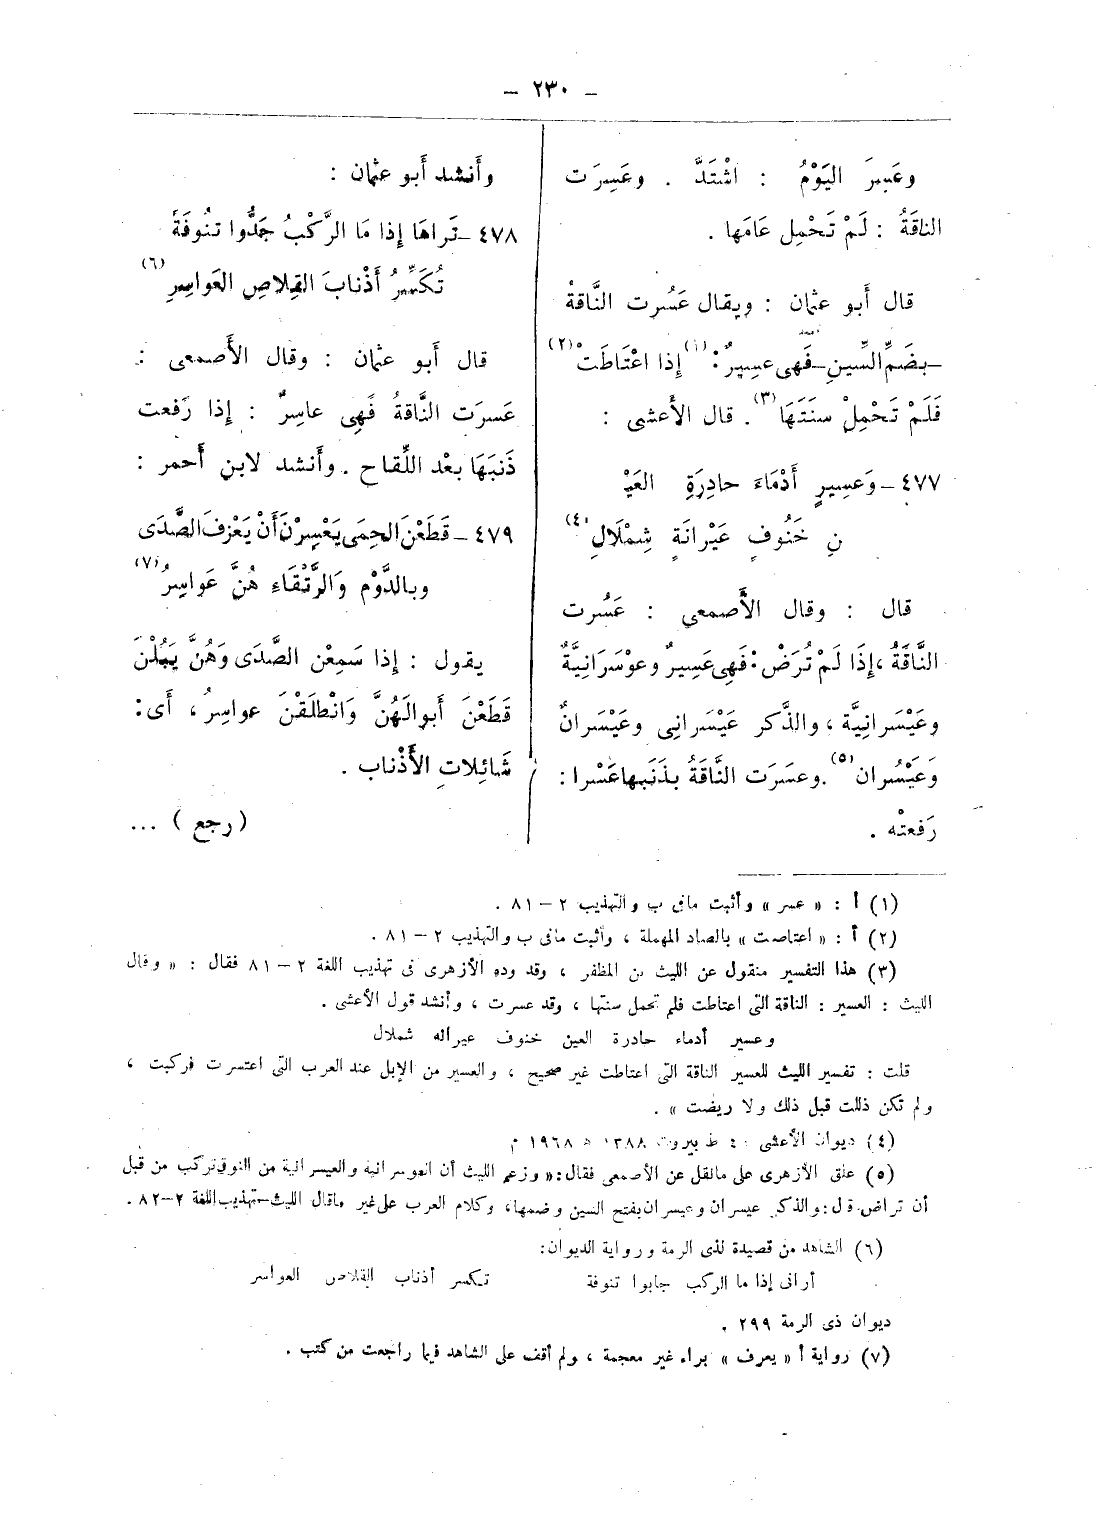 – ٢٣٠ –
وعَسِرَ اليَوْمُ : اشْتَدَّ . وعَسِرَت
الناقَةُ : لَمْ تَحْمِل عَامَها .
قال أَبو عثمان : ويقال عَسُرت النَّاقةُ
–بضَمِّ السِّينِ– فَهى عسِيرٌ:(١) إِذا اعْتَاطَتْ(٢)
فَلَمْ تَحْمِلْ سنَتَهَا(٣) . قال الأَعشى :
٤٧٧ – وَعسِيرٍ أَدْمَاءَ حادِرَةِ العَيْـ
نِ خَنُوفٍ عَيْرانَةٍ شِمْلَالِ(٤)
قال : وقال الأَصمعي : عَسُرت
النَّاقَةُ ، إِذَا لَمْ تُرَضْ : فَهِى عَسِيرٌ وعوْسَرَانِيَّةٌ
وعَيْسَرانِيَّة ، والذَّكر عَيْسَرانِى وعَيْسَرانٌ
وَعَيْسُران(٥) . وعسَرَت النَّاقَةُ بذَنَبِها عَسْرا :
رَفعتْه .
وأَنشد أَبو عثمان :
٤٧٨ – تَراهَا إِذا مَا الرَّكْبُ جَدُّوا تنُوفَةً
تُكَسِّرُ أَذْنابَ القِلاصِ العَواسِرِ(٦)
قال أَبو عثمان : وقال الأَصمعى :
عَسرَت النَّاقةُ فَهِى عاسِرٌ : إِذا رَفعت
ذَنبَهَا بعْد اللِّقاح . وأَنشد لابن أَحمر :
٤٧٩ – قَطَعْنَ الحِمَى يَعْسِرْنَ أَنْ يَعْزِفَ الصَّدَى
وبالدَّوْم وَالرَّتْقَاءِ هُنَّ عَواسِرُ(٧)
يقول : إِذا سَمِعْن الصَّدَى وَهُنَّ يَبُلْنَ
قَطَعْنَ أَبوالَهُنَّ وَانْطلَقْنَ عواسِرُ ، أَى :
شَائِلاتِ الأَذْناب .
( رجع ) ...
(١) أ : « عسر » وأثبت مافى ب والتهذيب ٢ – ٨١ .
(٢) أ : « اعتاصت » بالصاد المهملة ، وأثبت مافى ب والتهذيب ٢ – ٨١ .
(٣) هذا التفسير منقول عن الليث بن المظفر ، وقد رده الأزهرى فى تهذيب اللغة ٢ – ٨١ فقال : « وقال
الليث : العسير : الناقة التى اعتاطت فلم تحمل سنتها ، وقد عسرت ، وأنشد قول الأعشى .
وعسير أدماء حادرة العين خنوف عيرانه شملال
قلت : تفسير الليث للعسير الناقة التى اعتاطت غير صحيح ، والعسير من الإبل عند العرب التى اعتسرت فركبت ،
ولم تكن ذللت قبل ذلك ولا ريضت » .
(٤) ديوان الأعشى ط بيروت ١٣٨٨ ه ١٩٦٨ م
(٥) علق الأزهرى على مانقل عن الأصمعى فقال : « وزعم الليث أن العوسرانية والعيسرانية من النوق تركب من قبل
أن تراض. قال : والذكر عيسران وعيسران بفتح السين وضمها ، وكلام العرب على غير ماقال الليث – تهذيب اللغة ٢ – ٨٢ .
(٦) الشاهد من قصيدة لذى الرمة ورواية الديوان :
أرانى إذا ما الركب جابوا تنوفة تكسر أذناب القلاص العواسر
ديوان ذى الرمة ٢٩٩ .
(٧) رواية أ « يعرف » براء غير معجمة ، ولم أقف على الشاهد فيما راجعت من كتب .